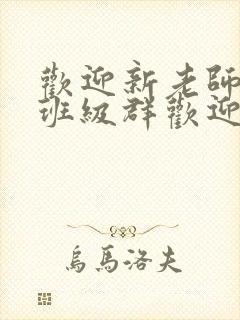 歡迎新老師
班級群歡迎
烏馬洛夫